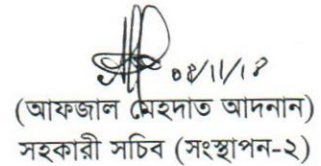 ০৪/১১/১৮
(আফজাল মেহদাত আদনান)
সহকারী সচিব (সংস্থাপন-২)